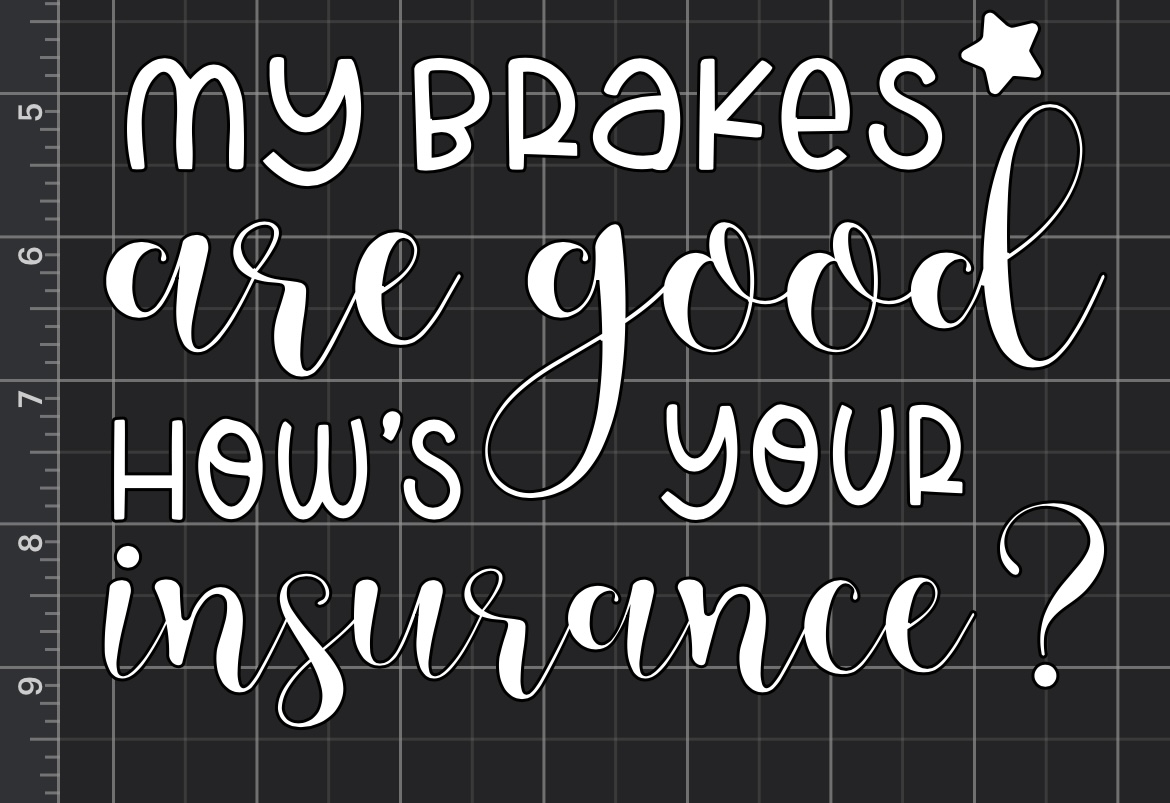 my BRakes
are good
HOW'S YOUR
insurance?
5
6
7
8
9